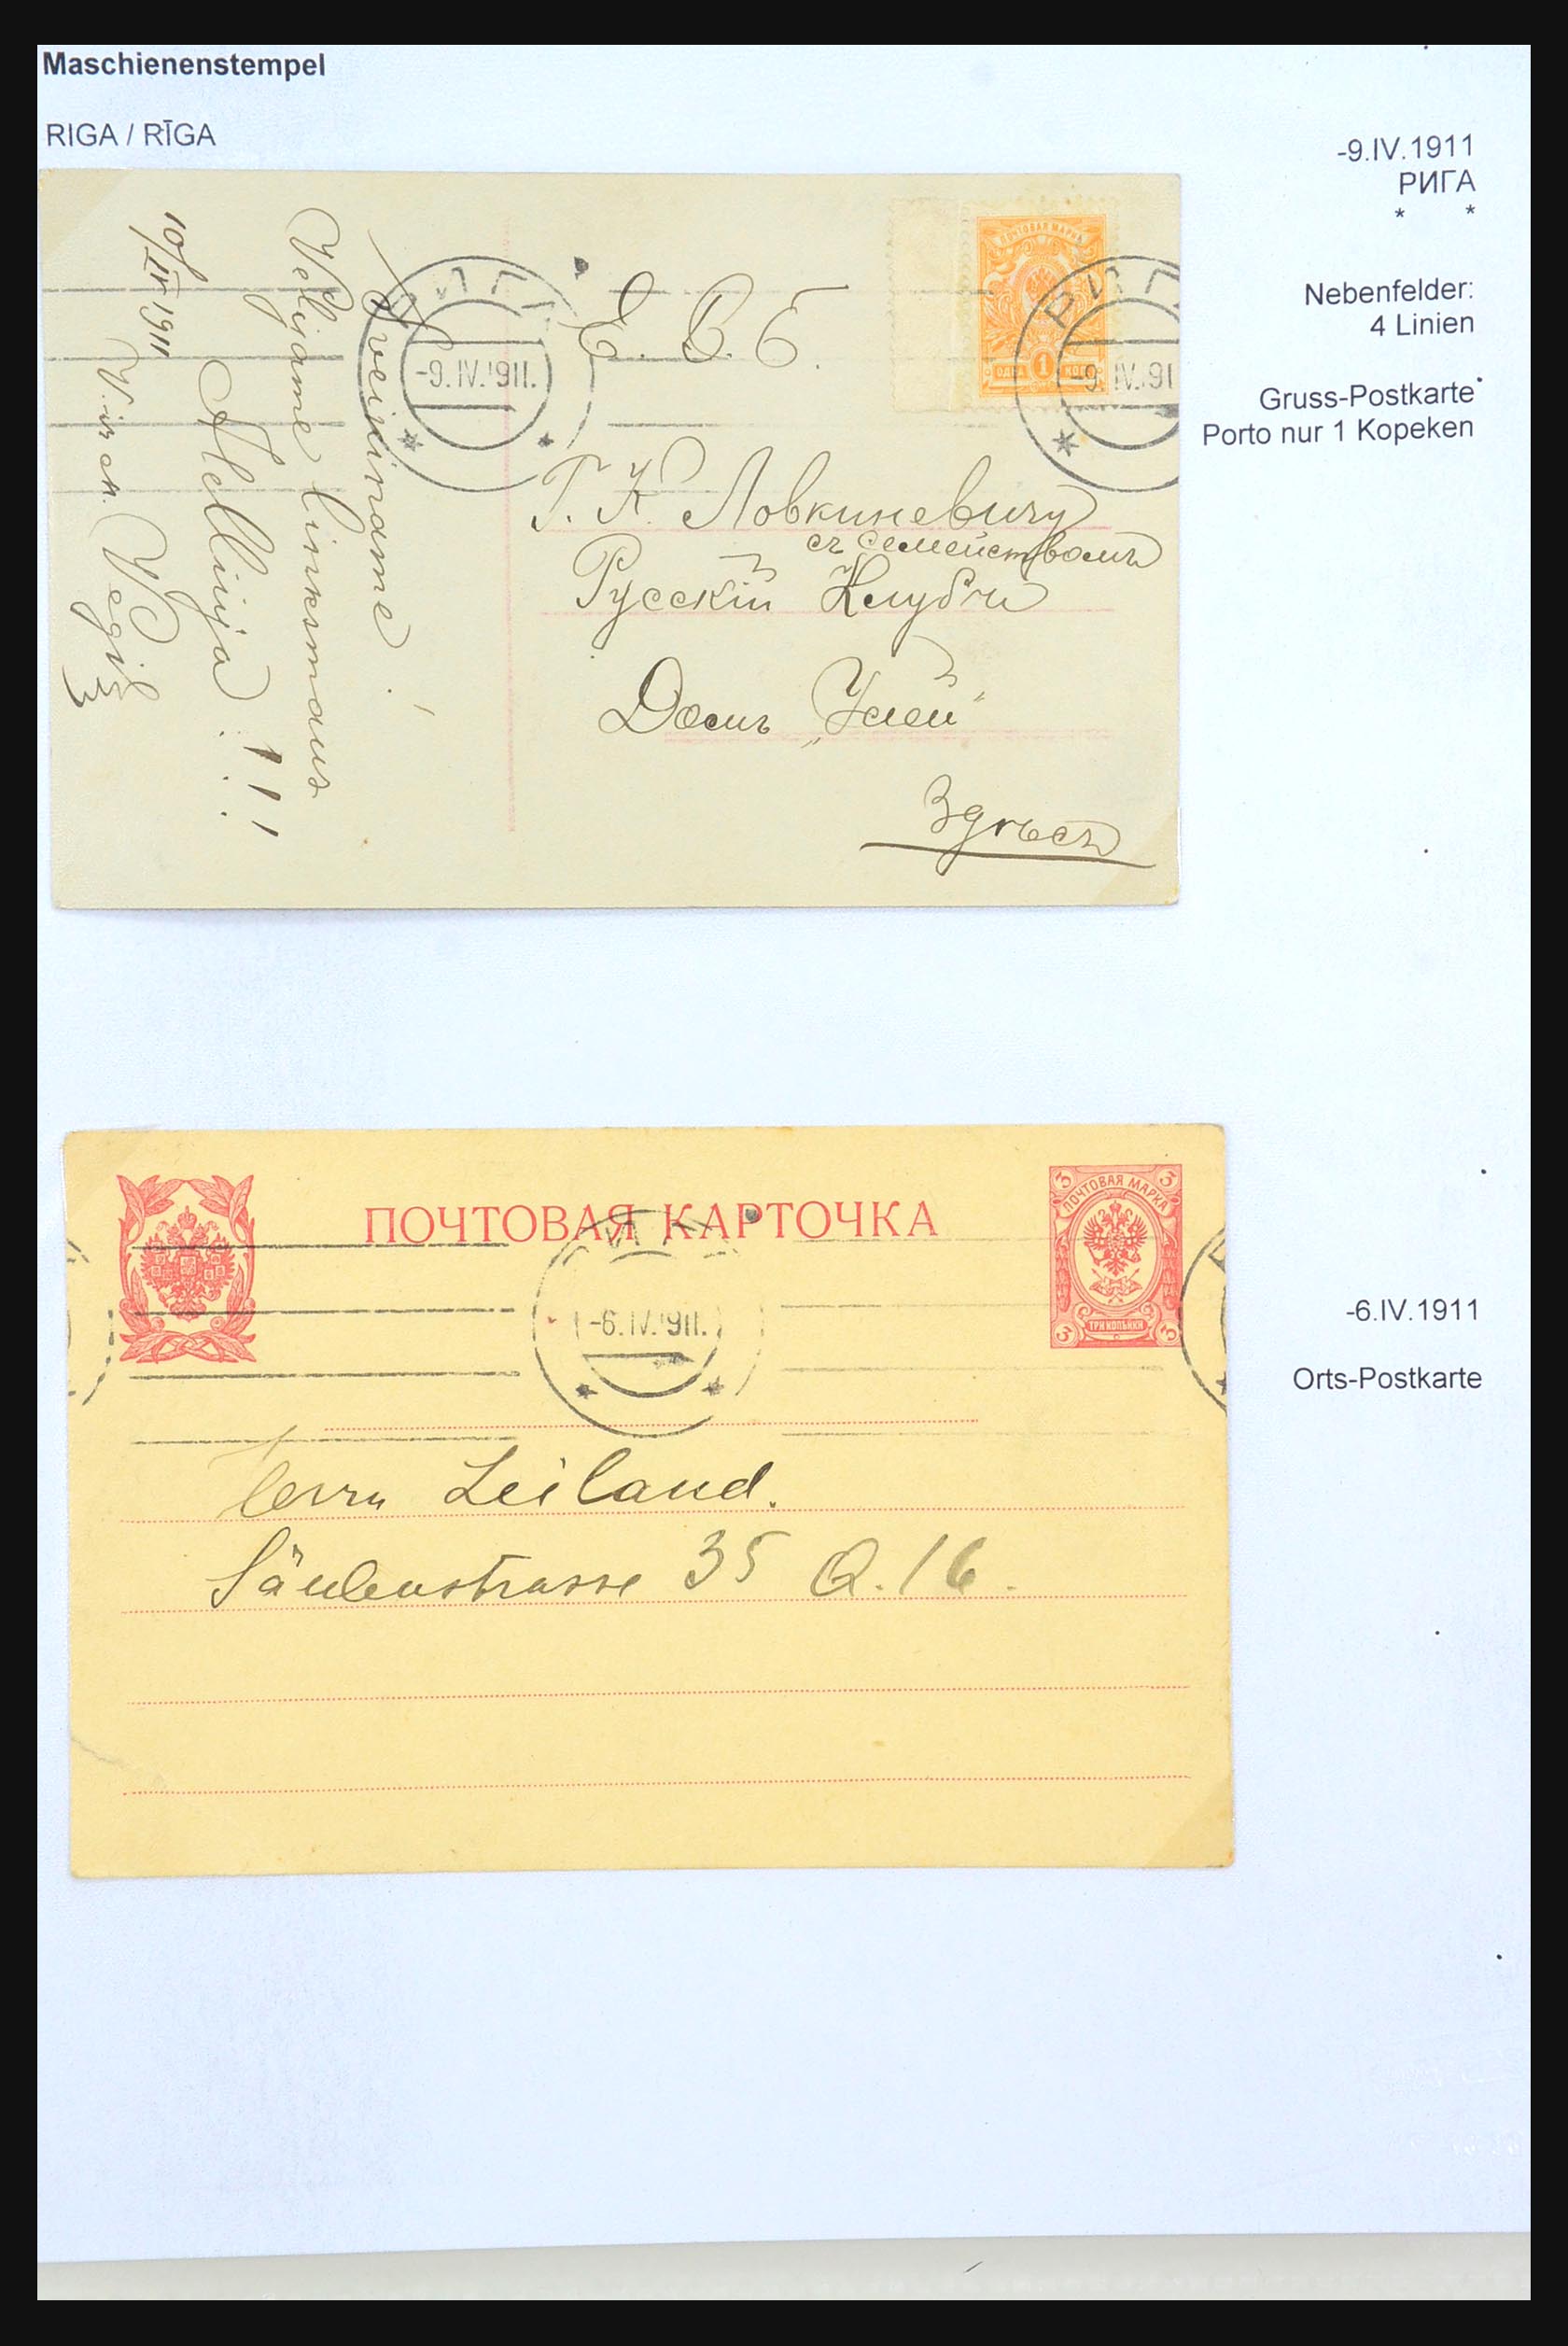 Maschienenstempel
RIGA / RĪGA
-9.IV.1911
РИГА
* *
Nebenfelder:
4 Linien
Gruss-Postkarte
Porto nur 1 Kopeken
10/IV 1911
Sveiciname
Velijame linksmaus
!!!
ПОЧТОВАЯ МАРКА
1
РИГА
-9.IV.1911.
РИГ
-9.IV.191
Е. В. Б.
Г. К. Ловкиневичу
съ семействомъ
Русскій Клубъ
Домъ „Улей"
Здѣсь
ПОЧТОВАЯ КАРТОЧКА
3 3
ПОЧТОВАЯ МАРКА
ТРИ КОПѢЙКИ
3 3
-6.IV.1911.
Herrn Leiland.
Säulenstrasse 35 Q. 16.
-6.IV.1911
Orts-Postkarte